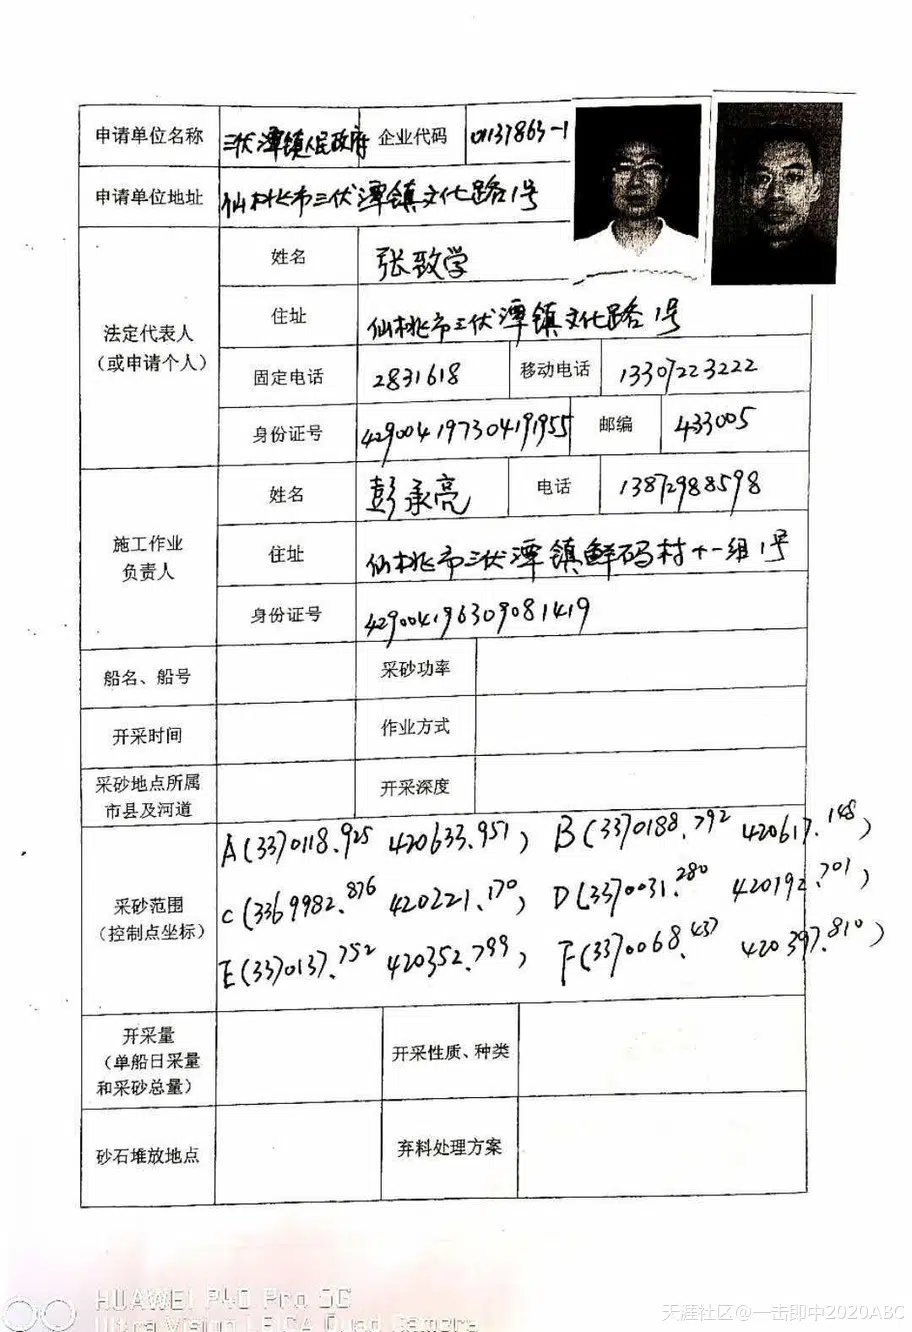 申请单位名称 三伏潭镇人民政府 企业代码 01137863-1
申请单位地址 仙桃市三伏潭镇文化路1号
法定代表人
（或申请个人）
姓名 张致学
住址 仙桃市三伏潭镇文化路1号
固定电话 2831618 移动电话 13307223222
身份证号 429004197304191955 邮编 433005
施工作业
负责人
姓名 彭承亮 电话 13872988598
住址 仙桃市三伏潭镇鲜码村十一组1号
身份证号 429004196309081419
船名、船号 采砂功率
开采时间 作业方式
采砂地点所属
市县及河道
开采深度
采砂范围
（控制点坐标）
A(3370118.925 420633.951)； B(3370188.792 420617.148)；
C(3369982.876 420221.170)； D(3370031.280 420192.701)；
E(3370137.752 420352.799)； F(3370068.437 420397.810)
开采量
（单船日采量
和采砂总量）
开采性质、种类
砂石堆放地点 弃料处理方案
HUAWEI P40 Pro 5G
Ultra Vision LEICA Quad Camera
天涯社区@一击即中2020ABC